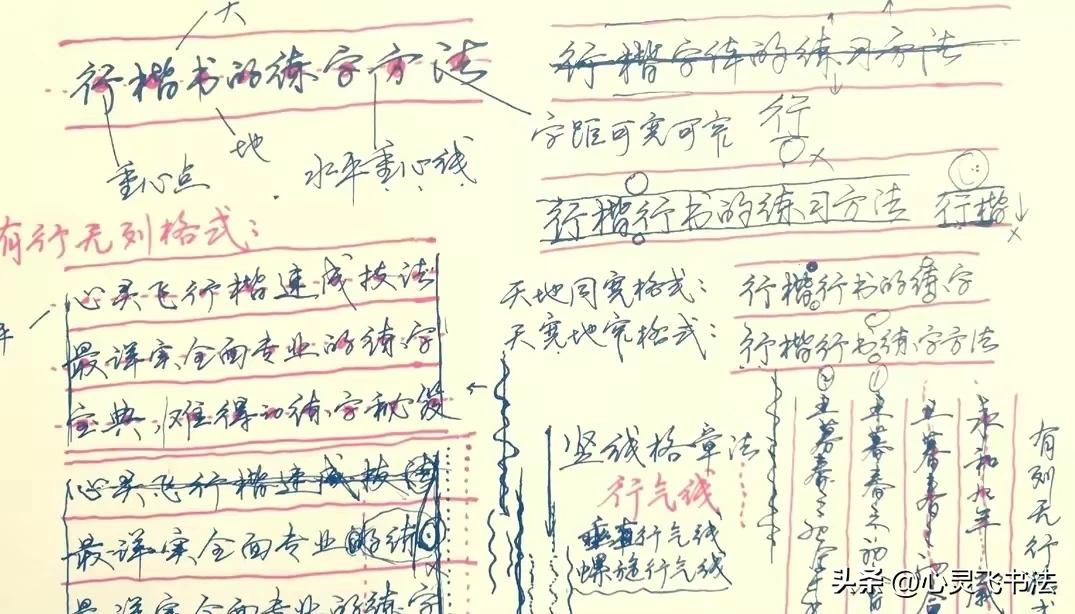 天
行楷书的练字方法
地
重心点
水平重心线
有行无列格式：
心灵飞行楷速成技法
最详实全面专业的练字
宝典，难得的练字秘笈
心灵飞行楷速成技
最详实全面专业的练
最详实全面专业的练字
行楷字体的练习方法
字距可宽可窄
行
行楷行书的练习方法
行楷
天地同宽格式：
行楷行书的练字
天宽地窄格式：
行楷行书练字方法
竖线格章法
行气线
垂直行气线
螺旋行气线
有列无行
永和九年
丑暮春之初会
丑暮春之初
丑暮春之初
头条 @心灵飞书法